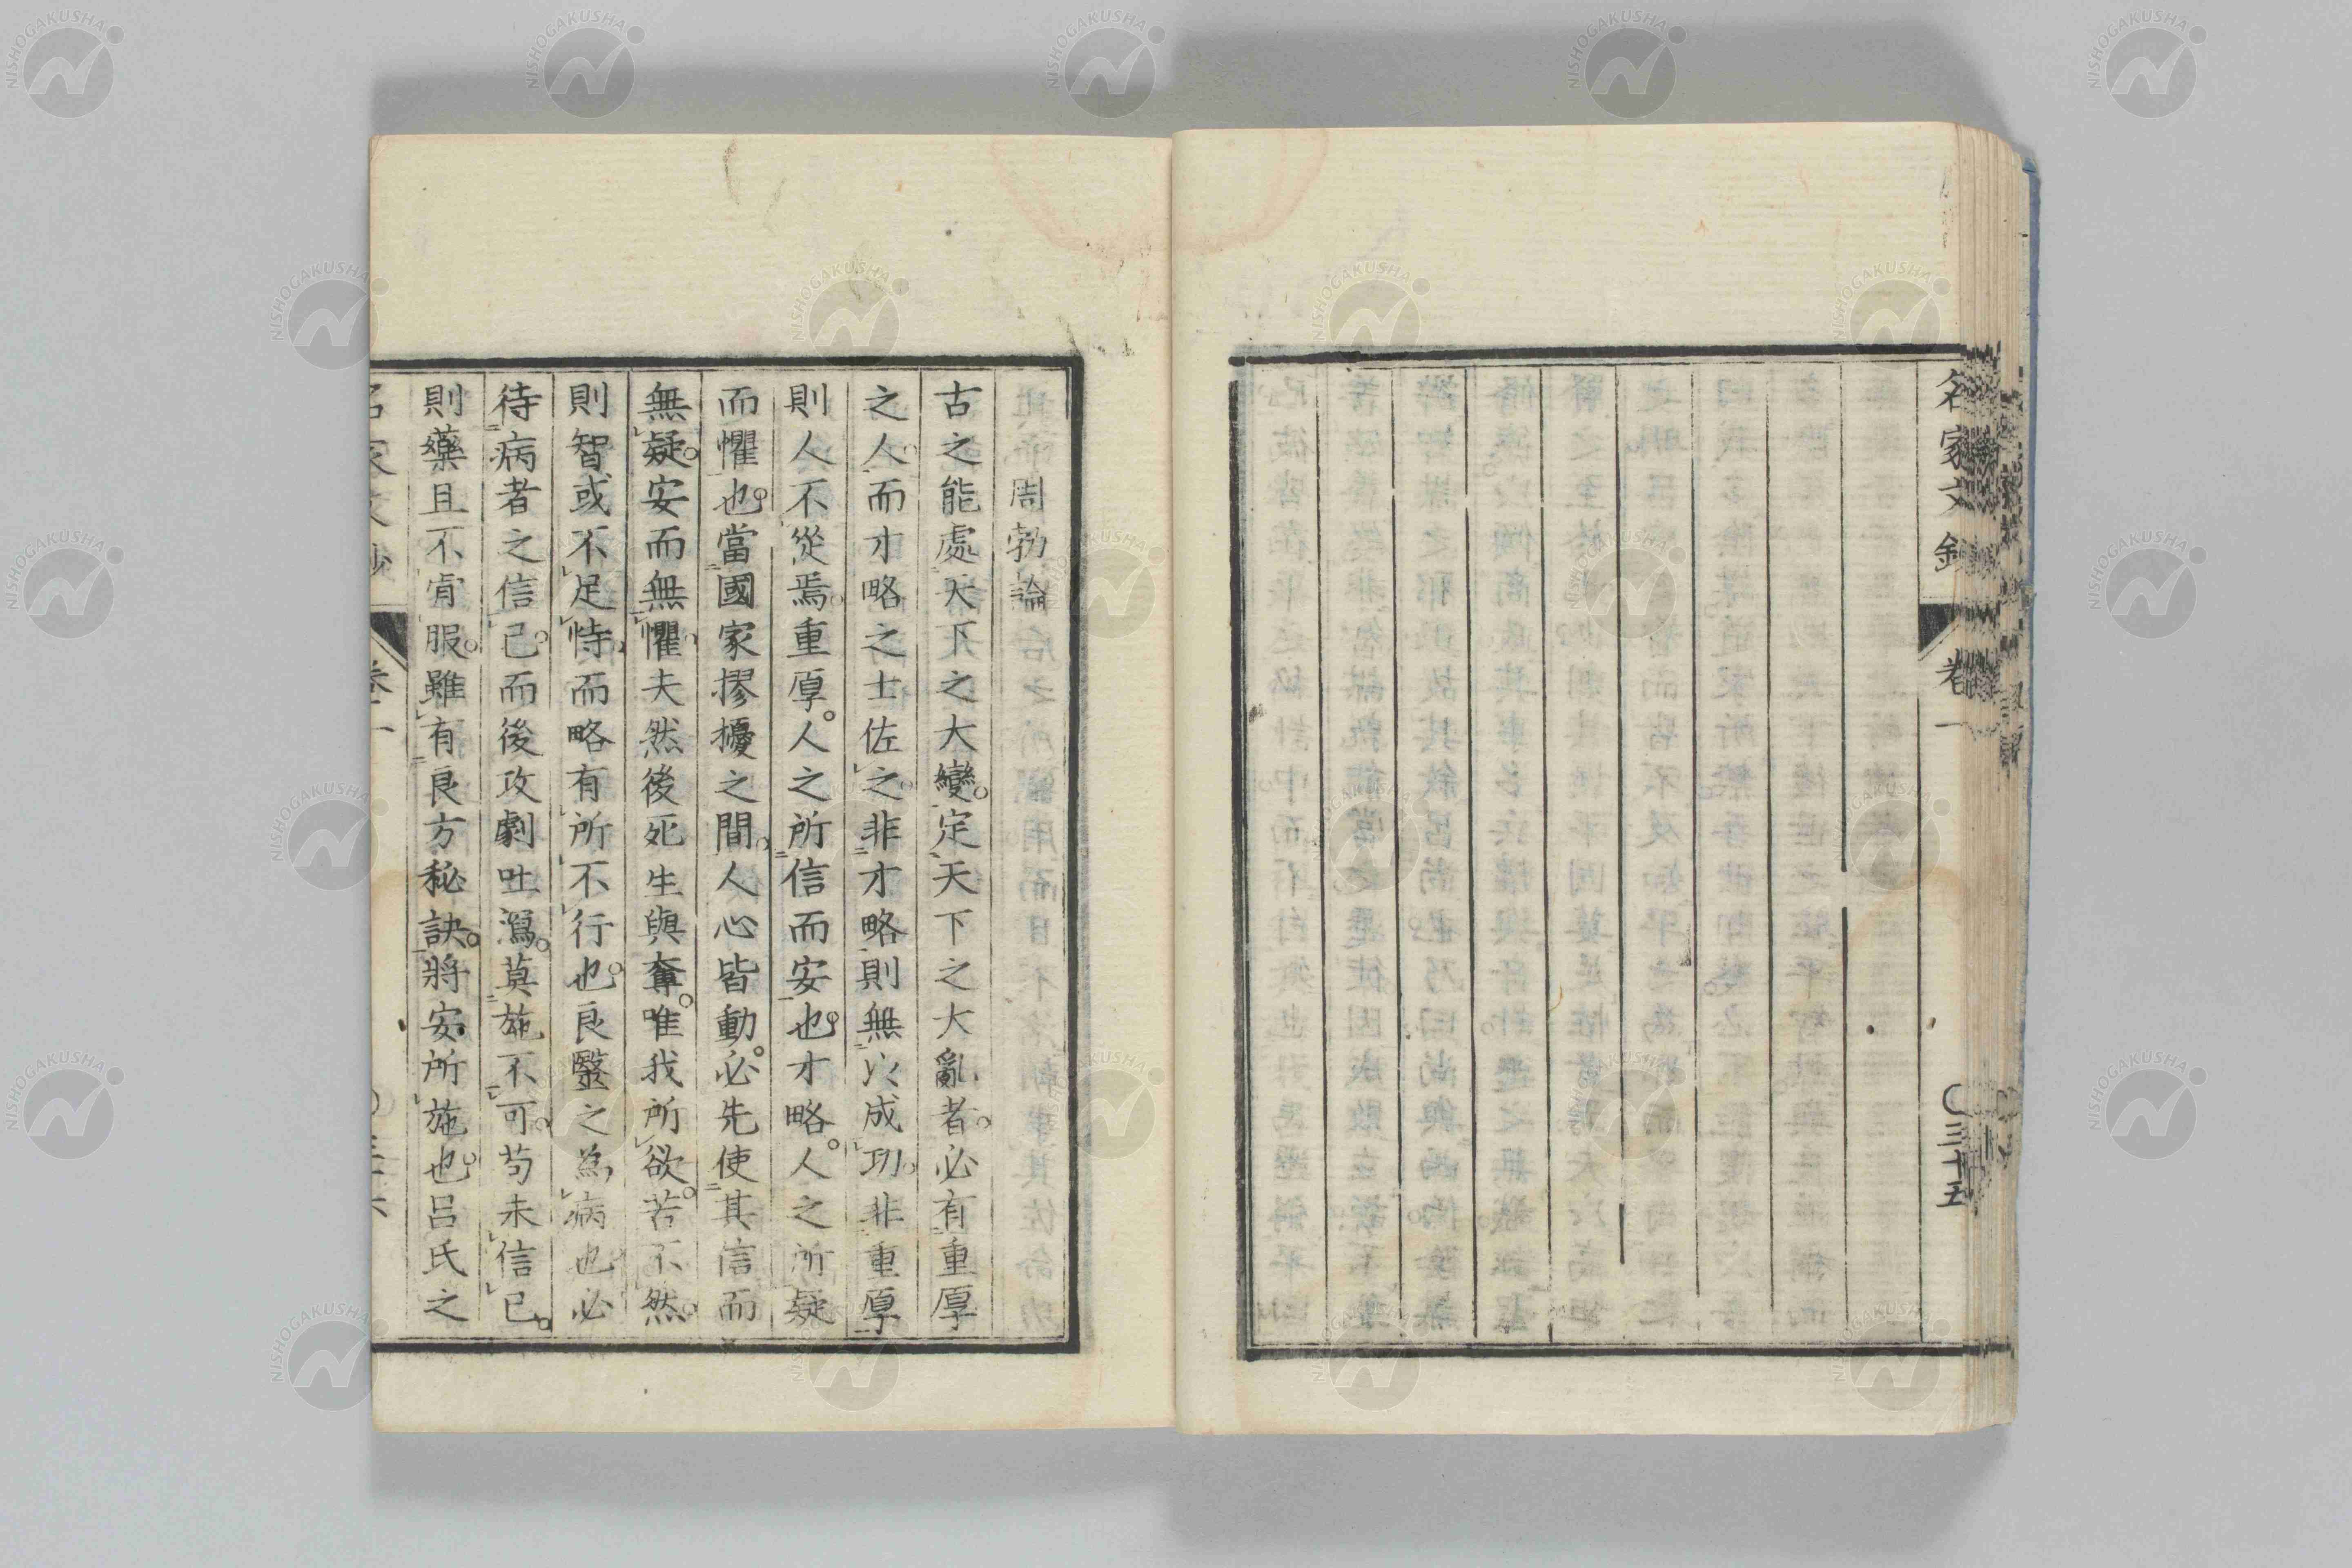 名家文鈔
卷一
〇三十五
周勃論
古之能處天下之大變。定天下之大亂者。必有重厚
之人。而才略之士佐之。非才略則無以成功。非重厚
則人不從焉。重厚。人之所信而安也。才略。人之所疑
而懼也。當國家摎擾之間。人心皆動。必先使其信而
無疑。安而無懼。夫然後死生與奪。唯我所欲。若不然。
則智或不足恃。而略有所不行也。良醫之爲病也必
待病者之信已。而後攻劇吐瀉。莫施不可。苟未信已。
則藥且不肯服。雖有良方秘訣。將安所施也。呂氏之
名家文鈔
卷一
NISHOGAKUSHA